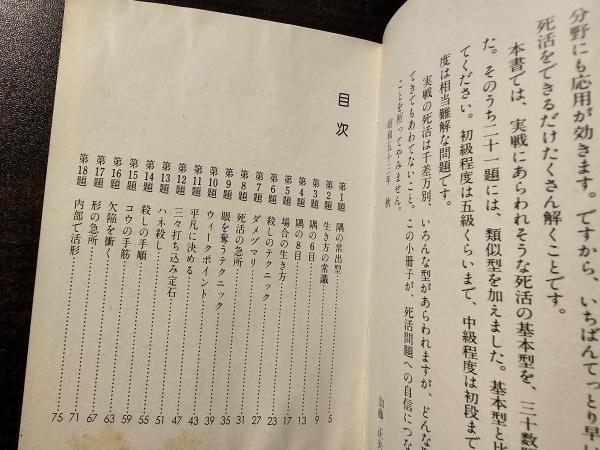 分野にも応用が効きます。ですから、いちばんてっとり早い
死活をできるだけたくさん解くことです。
本書では、実戦にあらわれそうな死活の基本型を、三十数題
た。そのうち二十一題には、類似型を加えました。基本型と比
てください。初級程度は五級くらいまで、中級程度は初段まで
度は相当難解な問題です。
実戦の死活は千差万別、いろんな型があらわれますが、どんな
てきてもあわてないこと。この小冊子が、死活問題への自信につな
ことを祈ってやみません。
昭和五十二年 秋
加藤 正夫
目次
第1題 隅の常出型 5
第2題 生き方の常識 9
第3題 隅の6目 13
第4題 隅の8目 17
第5題 場合の生き方 23
第6題 殺しのテクニック 27
第7題 ダメヅマリ 31
第8題 死活の急所 35
第9題 眼を奪うテクニック 39
第10題 ウィークポイント 43
第11題 平凡に決める 47
第12題 三々打ち込み定石 51
第13題 ハネ殺し 55
第14題 殺しの手順 59
第15題 コウの手筋 63
第16題 欠陥を衝く 67
第17題 形の急所 71
第18題 内部で活形 75